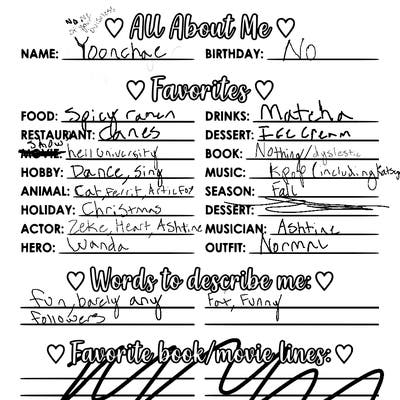 ♡ All About Me ♡
NAME: Yoonchae BIRTHDAY: No
♡ Favorites ♡
FOOD: Spicy ramen DRINKS: Matcha
RESTAURANT: Canes DESSERT: Ice cream
Show
MOVIE: hell University BOOK: Nothing/dyslestic
HOBBY: Dance, Sing MUSIC: Kpop (including Katsey
ANIMAL: Cat, Ferrit, ArticFox SEASON: Fall
HOLIDAY: Christmas DESSERT:
ACTOR: Zeke, Heart, Ashtine MUSICIAN: Ashtine
HERO: Wanda OUTFIT: Normal
♡ Words to describe me: ♡
fun, barely any Fat, Funny
Followers
♡ Favorite book/movie lines: ♡